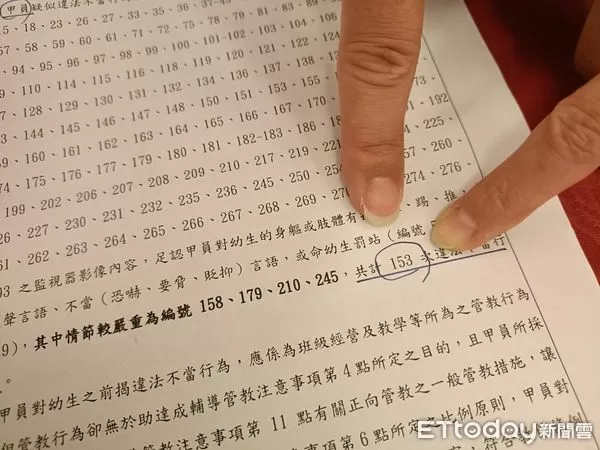 甲員疑似違法不當行
15、18、23、26、27、33、35、36、37
57、58、59、60、61、71、72、75、78、79、81、83、89
94、95、96、97、98、99、100、101-102、103、104
109、110、114、115、116、118、119、120、121、122、124
127、128、129、130、131、132、134、136、137、138
143、144、145、146、147、148、150、151、153、155
159、160、161、162、163、164、165、166、167、170 192
174、175、176、177、179、180、181、182-183、186 225、
199、202、206、207、208、209、210、217、219、221 260、
227、230、231、232、235、236、245、250、254 276、
261、262、265、266、267、268、269、270 274、
93 之監視器影像內容,足認甲員對幼生的身軀或肢體有 、踢、推、
聲言語、不當(恐嚇、要脅、貶抑)言語,或命幼生罰站(編號
9),其中情節較嚴重為編號 158、179、210、245,共計 153 次違法不當行
。
甲員對幼生之前揭違法不當行為,應係為班級經營及教學等所為之管教行為
但管教行為卻無於助達成輔導管教注意事項第 4 點所定之目的,且甲員所採
管教注意事項第 11 點有關正向管教之一般管教措施,讓
事項第 6 點所定之比例原則,甲員對
,符合
ETtoday新聞雲